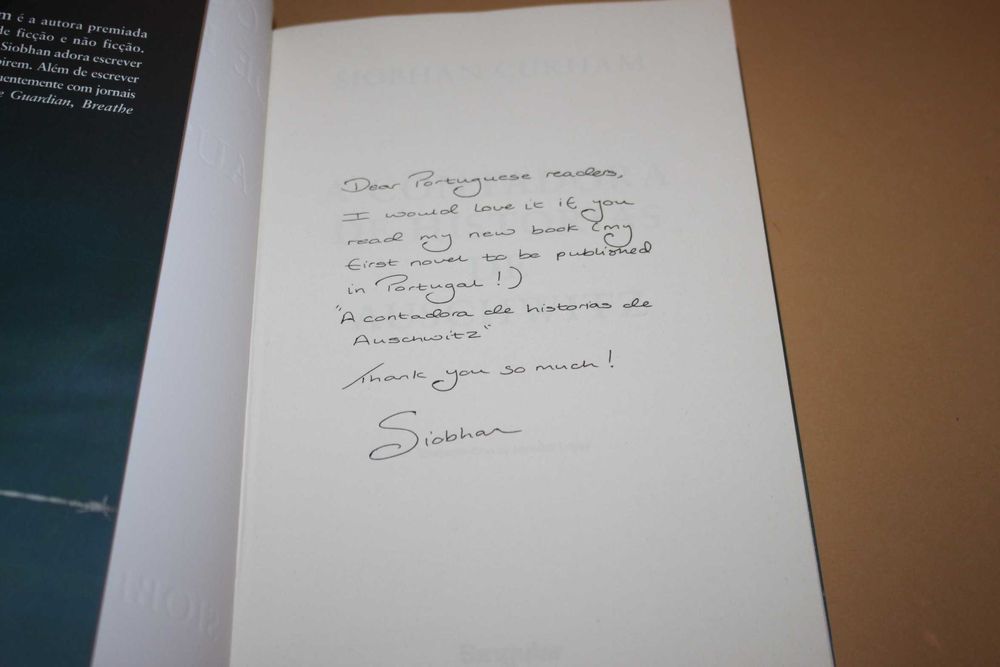 m é a autora premiada
de ficção e não ficção.
Siobhan adora escrever
pirem. Além de escrever
quentemente com jornais
e Guardian, Breathe
SIOBHAN CURHAM
Dear Portuguese readers,
I would love it if you
read my new book (my
first novel to be published
in Portugal!)
"A contadora de historias de
Auschwitz"
Thank you so much!
Siobhan